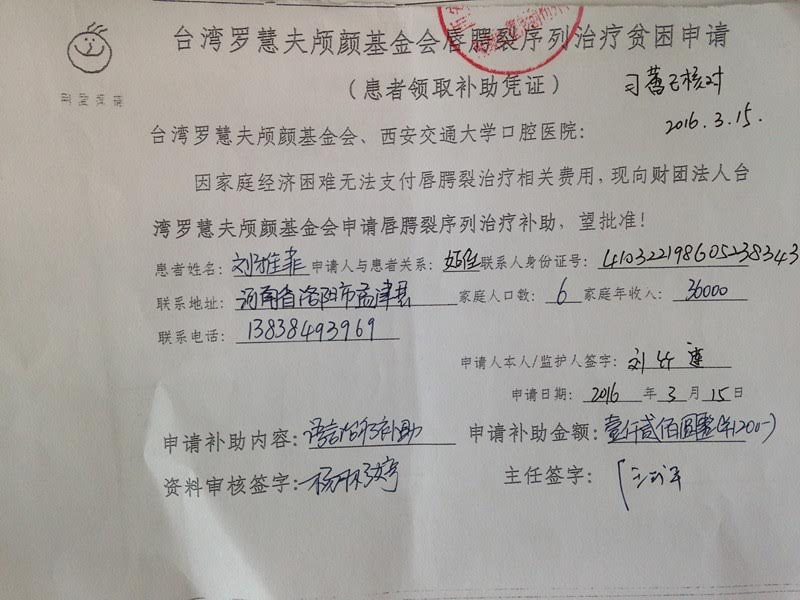 台湾罗慧夫颅颜基金会唇腭裂序列治疗贫困申请
(患者领取补助凭证)
已核对
2016.3.15.
台湾罗慧夫颅颜基金会、西安交通大学口腔医院:
因家庭经济困难无法支付唇腭裂治疗相关费用,现向财团法人台
湾罗慧夫颅颜基金会申请唇腭裂序列治疗补助,望批准!
患者姓名:刘雅菲 申请人与患者关系: 联系人身份证号:410322198605238343
联系地址:河南省洛阳市孟津县 家庭人口数:6 家庭年收入:36000
联系电话:13838493969
申请人本人/监护人签字:刘竹莲
申请日期:2016 年 3 月 15 日
申请补助内容:语言治疗补助 申请补助金额:壹仟贰佰圆整(¥1200-)
资料审核签字: 主任签字: